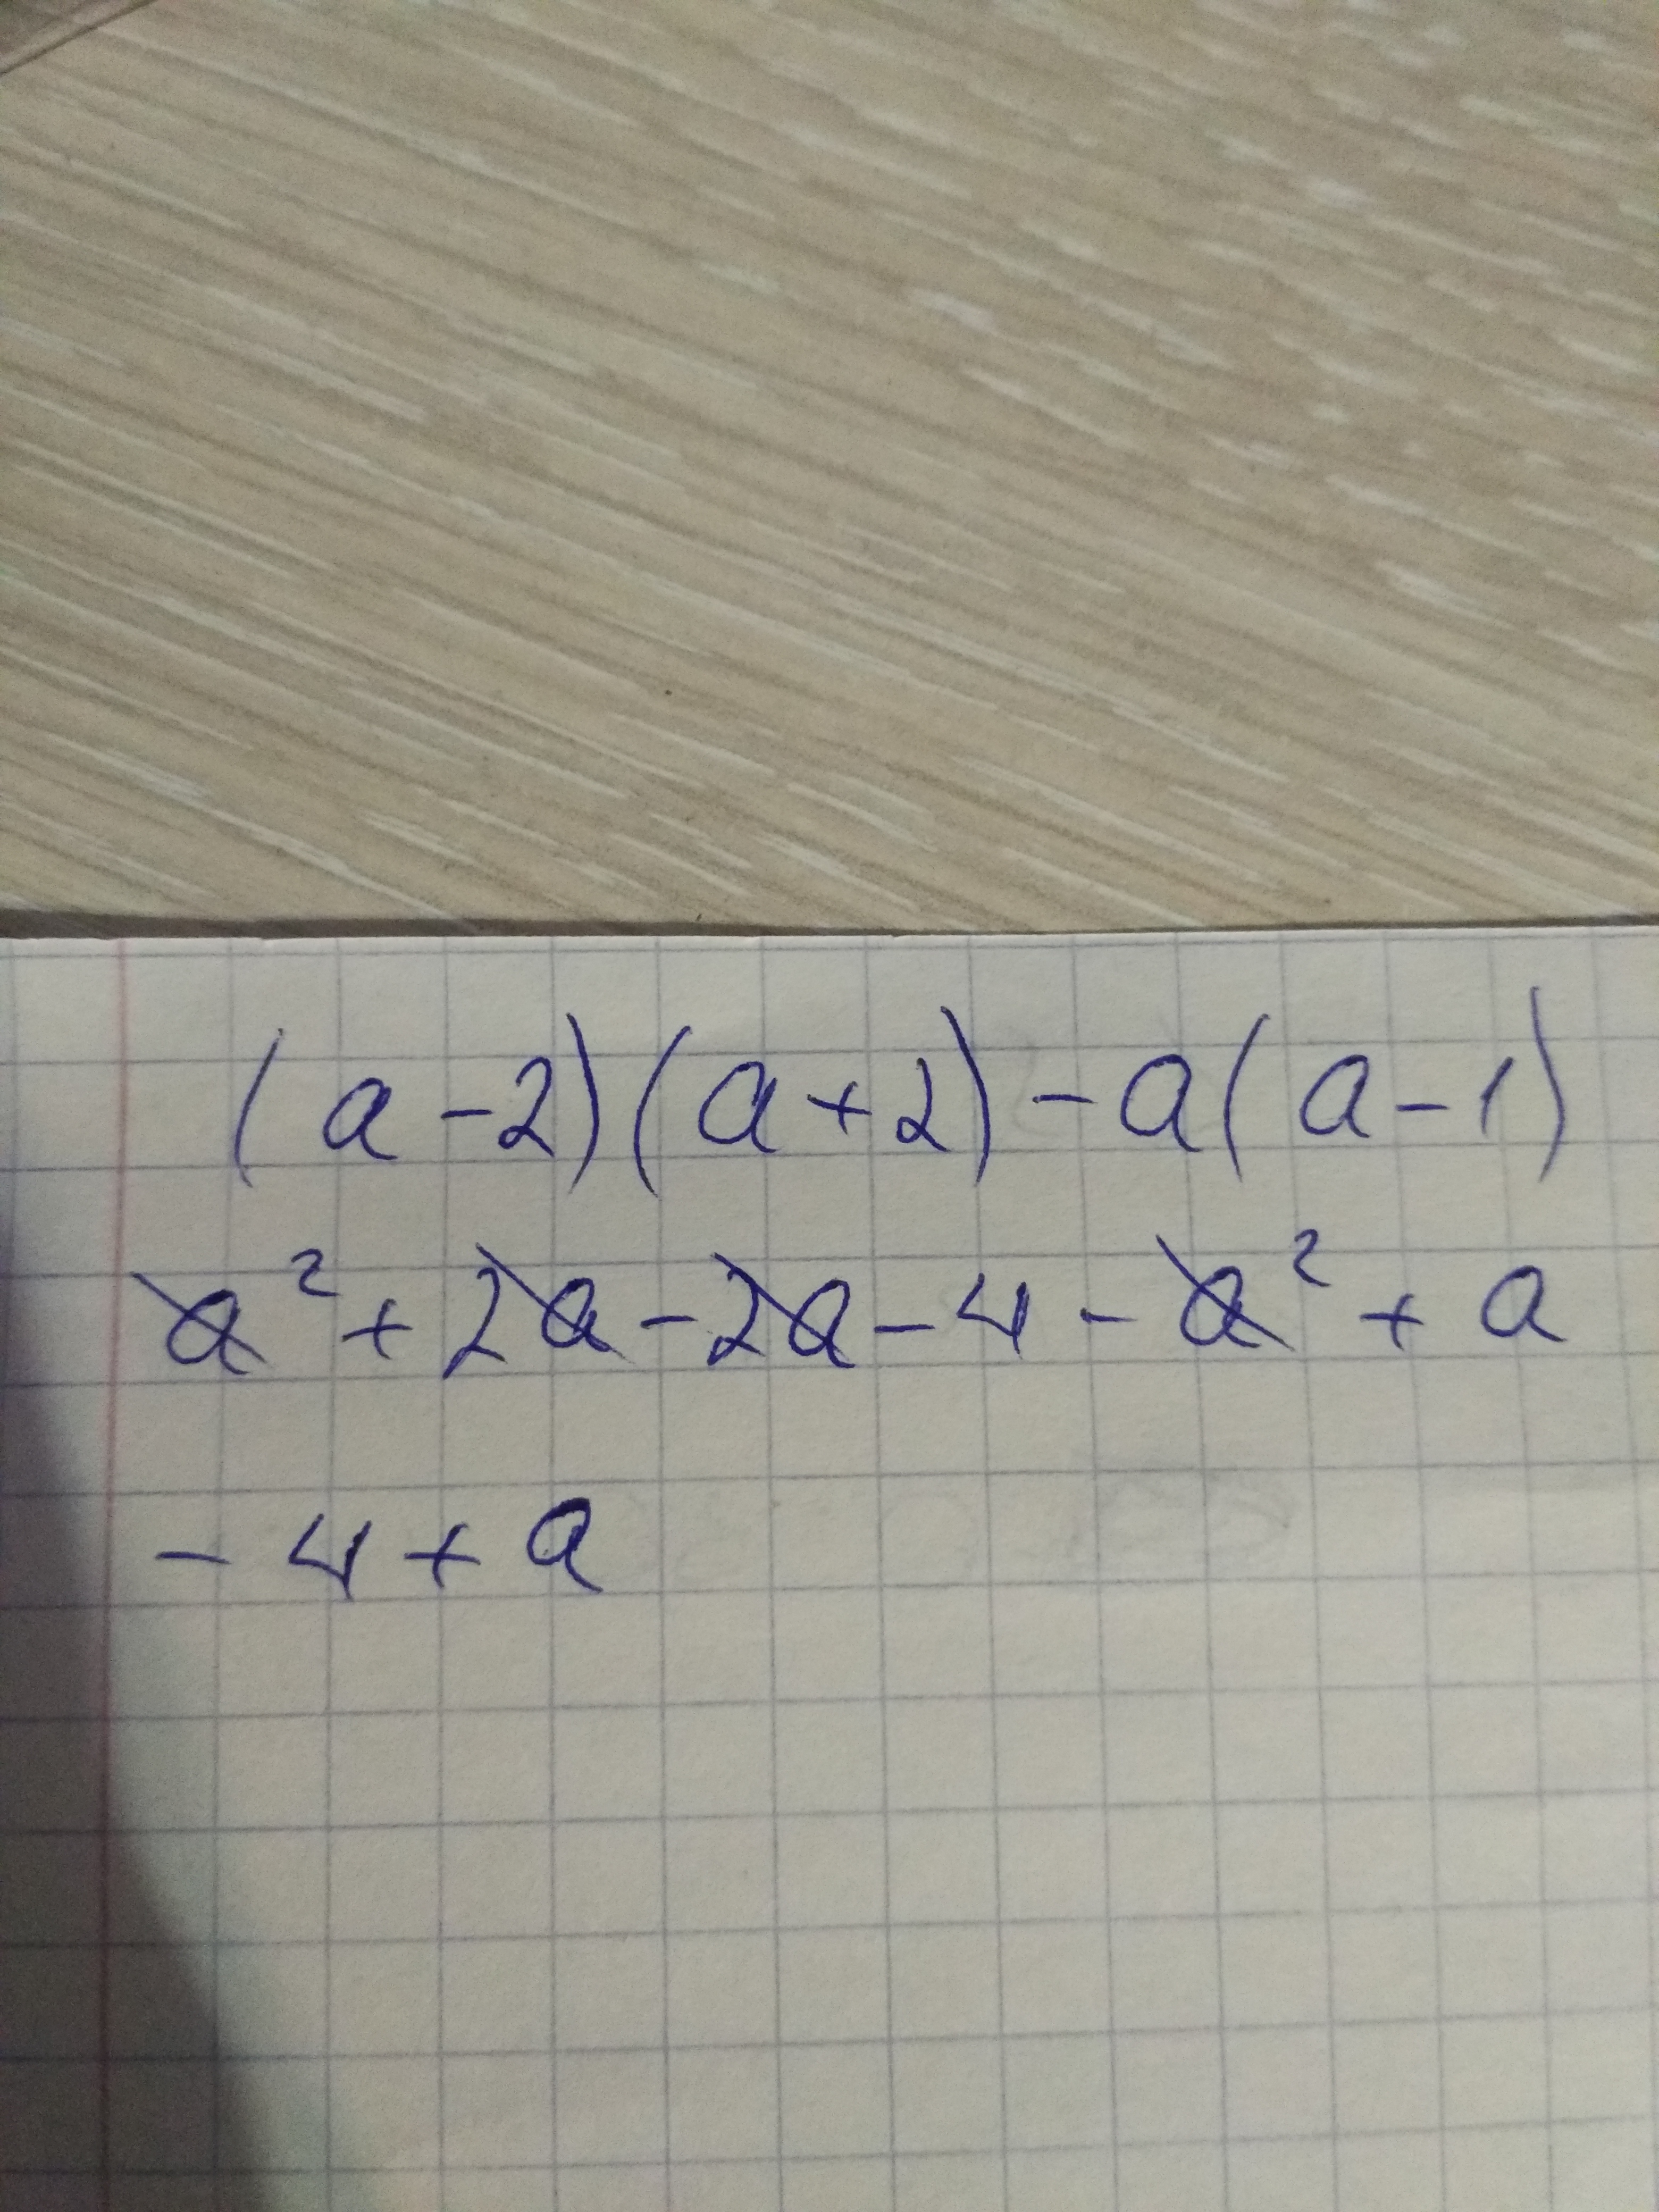 (a-2)(a+2)-a(a-1)
a²+2a-2a-4-a²+a
-4+a